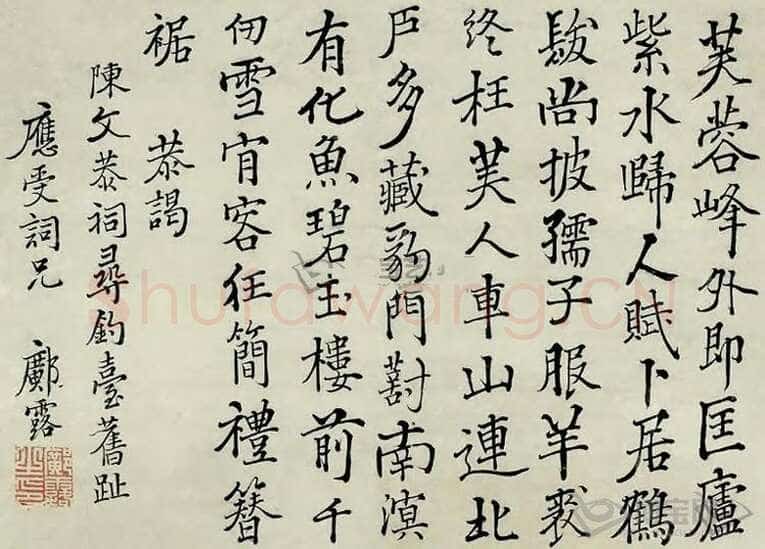 芙蓉峰外即匡廬
紫水歸人賦卜居鶴
髮尚披孺子服羊裘
終枉美人車山連北
戶多藏豹門對南溟
有化魚碧玉樓前千
仞雪肎容狂簡禮簪
裾 恭謁
陳文恭祠尋釣臺舊趾
應受詞兄 鄺露
shufawang.CN